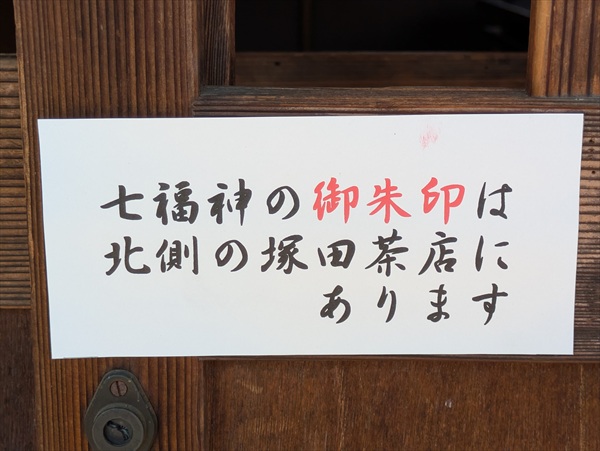 七福神の御朱印は
北側の塚田茶店に
あります